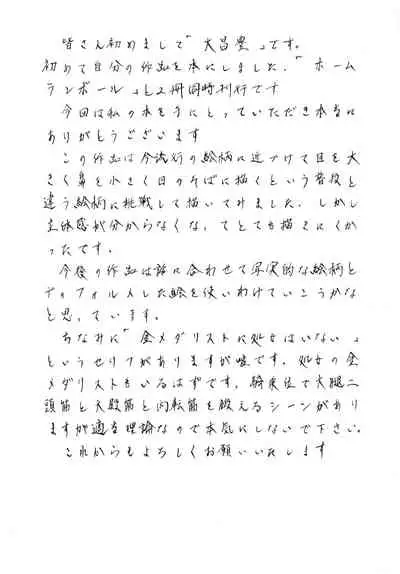 皆さん初めまして「大昌豊」です。
初めて自分の作品を本にしました。「ホーム
ランボール」と2冊同時刊行です
今回は私の本を手にとっていただき本当に
ありがとうございます
この作品は今流行の絵柄に近づけて目を大
きく鼻を小さく目のそばに描くという普段と
違う絵柄に挑戦して描いてみました。しかし
立体感が分からなくなってとても描きにくか
ったです。
今後の作品は話に合わせて写実的な絵柄と
ディフォルメした絵を使いわけていこうかな
と思っています。
ちなみに「金メダリストに処女はいない」
というセリフがありますが嘘です。処女の金
メダリストもいるはずです。騎乗位で大腿二
頭筋と大殿筋と内転筋を鍛えるシーンがあり
ますが適当理論なので本気にしないで下さい。
これからもよろしくお願いいたします